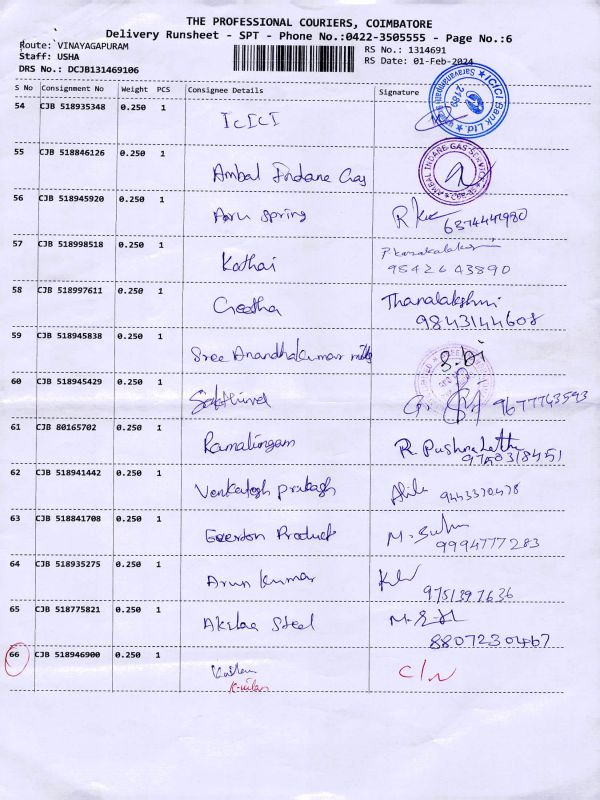 THE PROFESSIONAL COURIERS, COIMBATORE
Delivery Runsheet - SPT - Phone No.:0422-3505555 - Page No.:6
Route: VINAYAGAPURAM RS No.: 1314691
Staff: USHA RS Date: 01-Feb-2024
DRS No.: DCJB131469106
S No Consignment No Weight PCS Consignee Details Signature
54 CJB 518935348 0.250 1 ICICI
ICICI Bank Ltd. 2189
55 CJB 518846126 0.250 1 Ambal Indane Gas
AMBAL INDANE GAS SERVICE
56 CJB 518945920 0.250 1 Aaru Spring 6374441980
57 CJB 518998518 0.250 1 Kathai
58 CJB 518997611 0.250 1 Geetha Thanalakshmi
9843144608
59 CJB 518945838 0.250 1 Sree Anandhakumar mills S.Di
60 CJB 518945429 0.250 1 Sakthivel 9677743593
61 CJB 80165702 0.250 1 Ramalingam R. Pushpalatha
9750318451
62 CJB 518941442 0.250 1 Venkatesh prakash 9443370478
63 CJB 518841708 0.250 1 Everton Product
9994777283
64 CJB 518935275 0.250 1 Arun kumar
9751397636
65 CJB 518775821 0.250 1 Akshaa Steel
8807230467
66 CJB 518946900 0.250 1 C/N